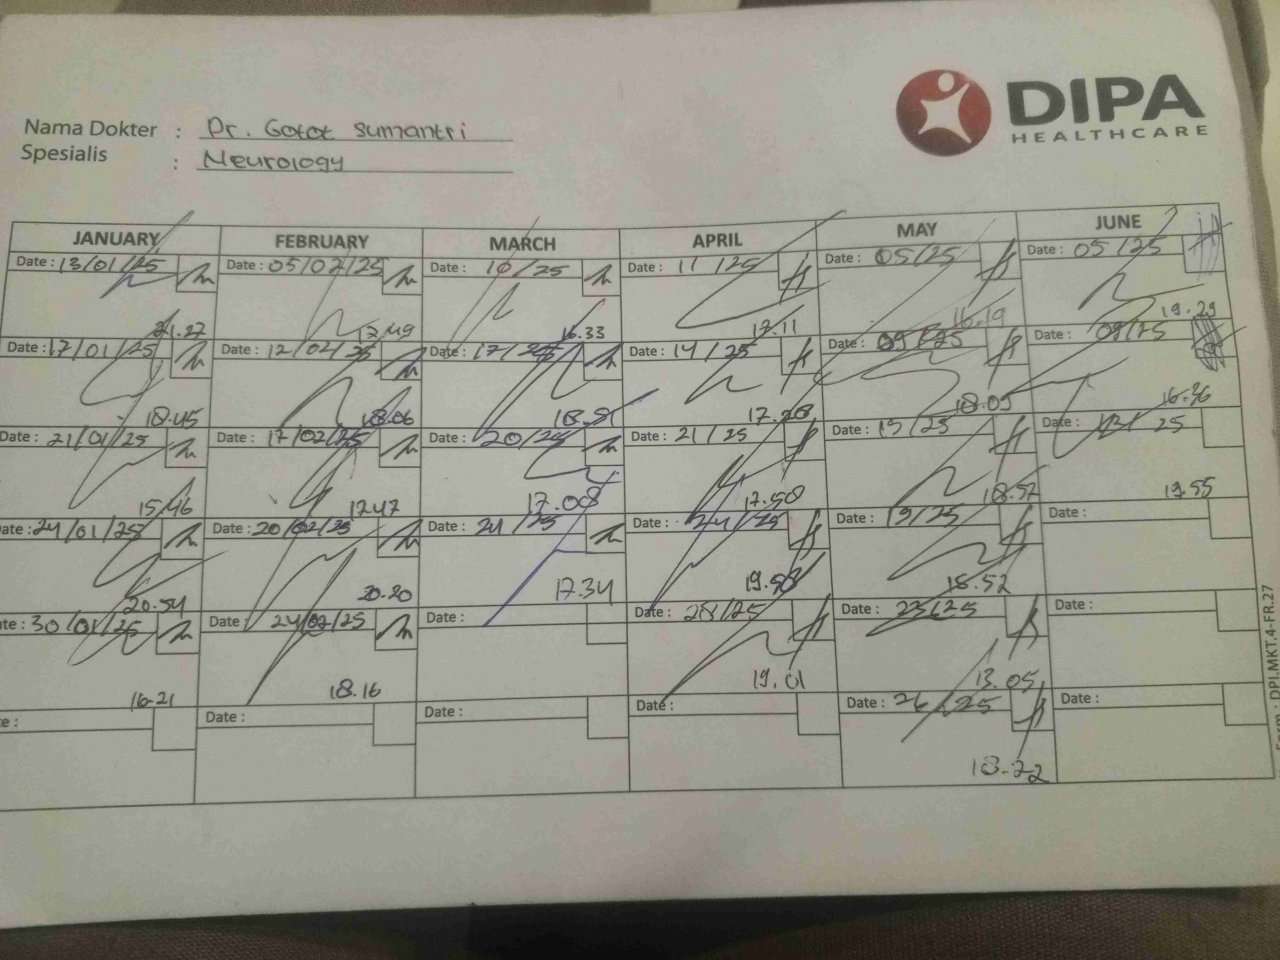 DIPA
HEALTHCARE
Nama Dokter : Dr. Gatot Sumantri
Spesialis : Neurology
JANUARY FEBRUARY MARCH APRIL MAY JUNE
Date : 13/01/25 Date : 05/02/25 Date : 10/25 Date : 11/25 Date : 05/25 Date : 05/25
21.27 17.49 16.33 17.11 16.19 19.29
Date : 17/01/25 Date : 12/02/25 Date : 17/25 Date : 14/25 Date : 09/25 Date : 09/25
18.45 18.06 18.51 17.28 18.05 16.36
Date : 21/01/25 Date : 17/02/25 Date : 20/25 Date : 21/25 Date : 15/25 Date : /25
15.46 17.47 17.08 17.58 18.52 19.55
Date : 24/01/25 Date : 20/02/25 Date : 24/25 Date : 24/25 Date : 19/25 Date :
20.54 20.20 17.34 19.58 18.52
te : 30/01/25 Date : 24/02/25 Date : Date : 28/25 Date : 23/25 Date :
16.21 18.16 19.01 13.05
e : Date : Date : Date : Date : 26/25 Date :
18.22
Form : DPI.MKT.4-FR.27